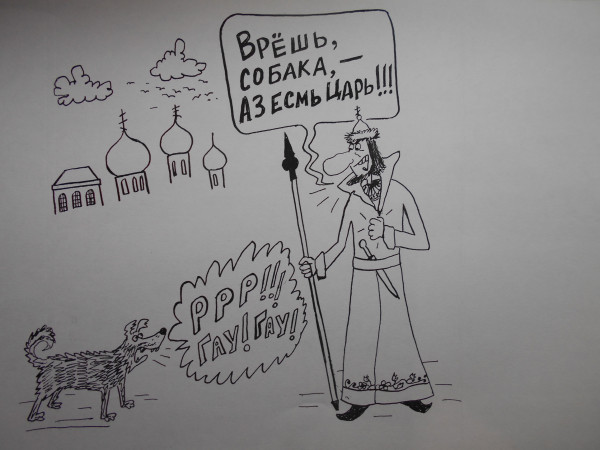 Врёшь,
собака, —
аз есмь Царь!!!
РРР!!!
ГАУ! ГАУ!